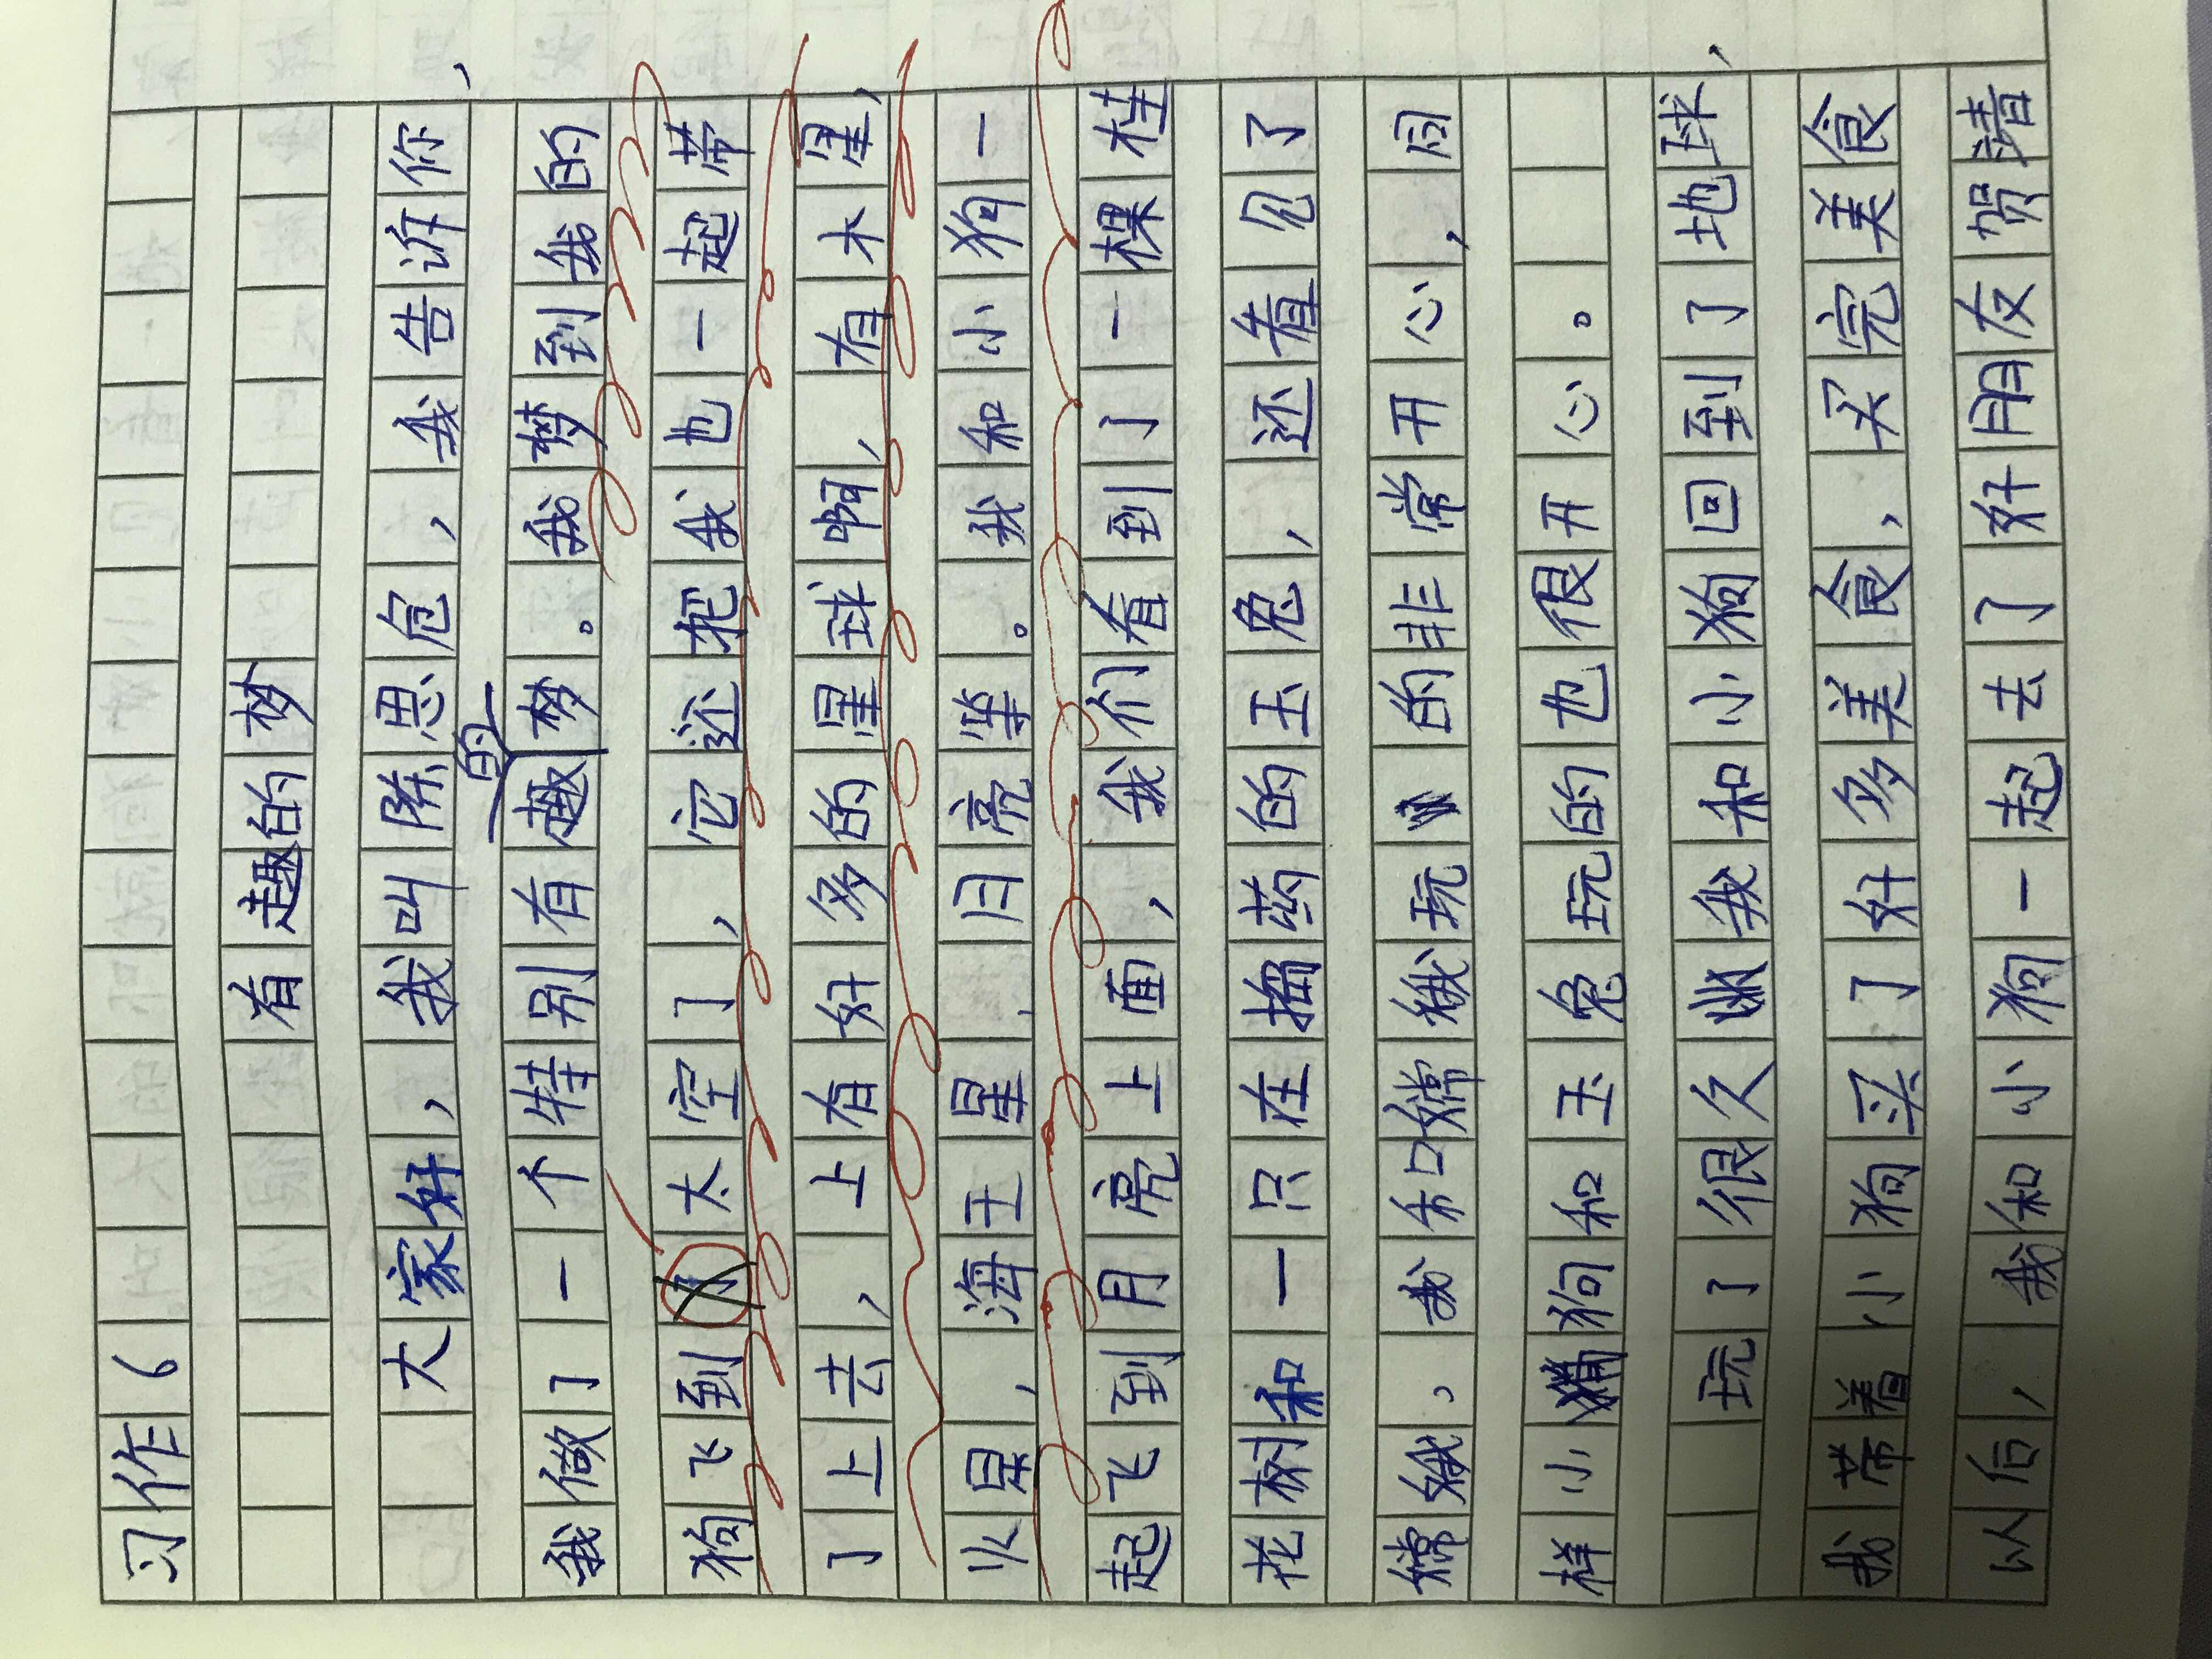 习作6
有趣的梦
大家好，我叫陈思危，我告诉你，
我做了一个特别有趣的梦。我梦到我的
狗飞到太空了，它还把我也一起带
了上去，上有好多的星球啊，有木星，
火星，海王星，月亮等。我和小狗一
起飞到月亮上面，我们看到了一棵桂
花树和一只在捣药的玉兔，还看见了
嫦娥，我和嫦娥玩的非常开心，同
样小狗和玉兔玩的也很开心。
玩了很久我和小狗回到了地球，
我带着小狗买了好多美食，买完美食
以后，我和小狗一起去了好朋友贺靖